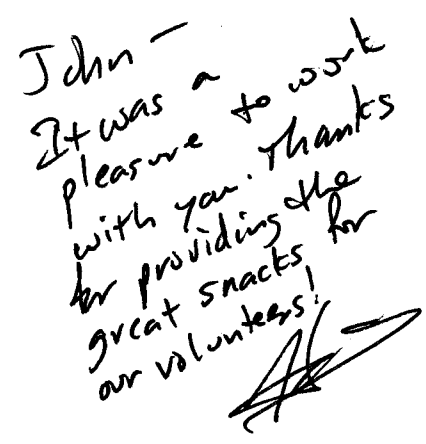 John —
It was a
pleasure to work
with you. Thanks
for providing the
great snacks for
our volunteers!